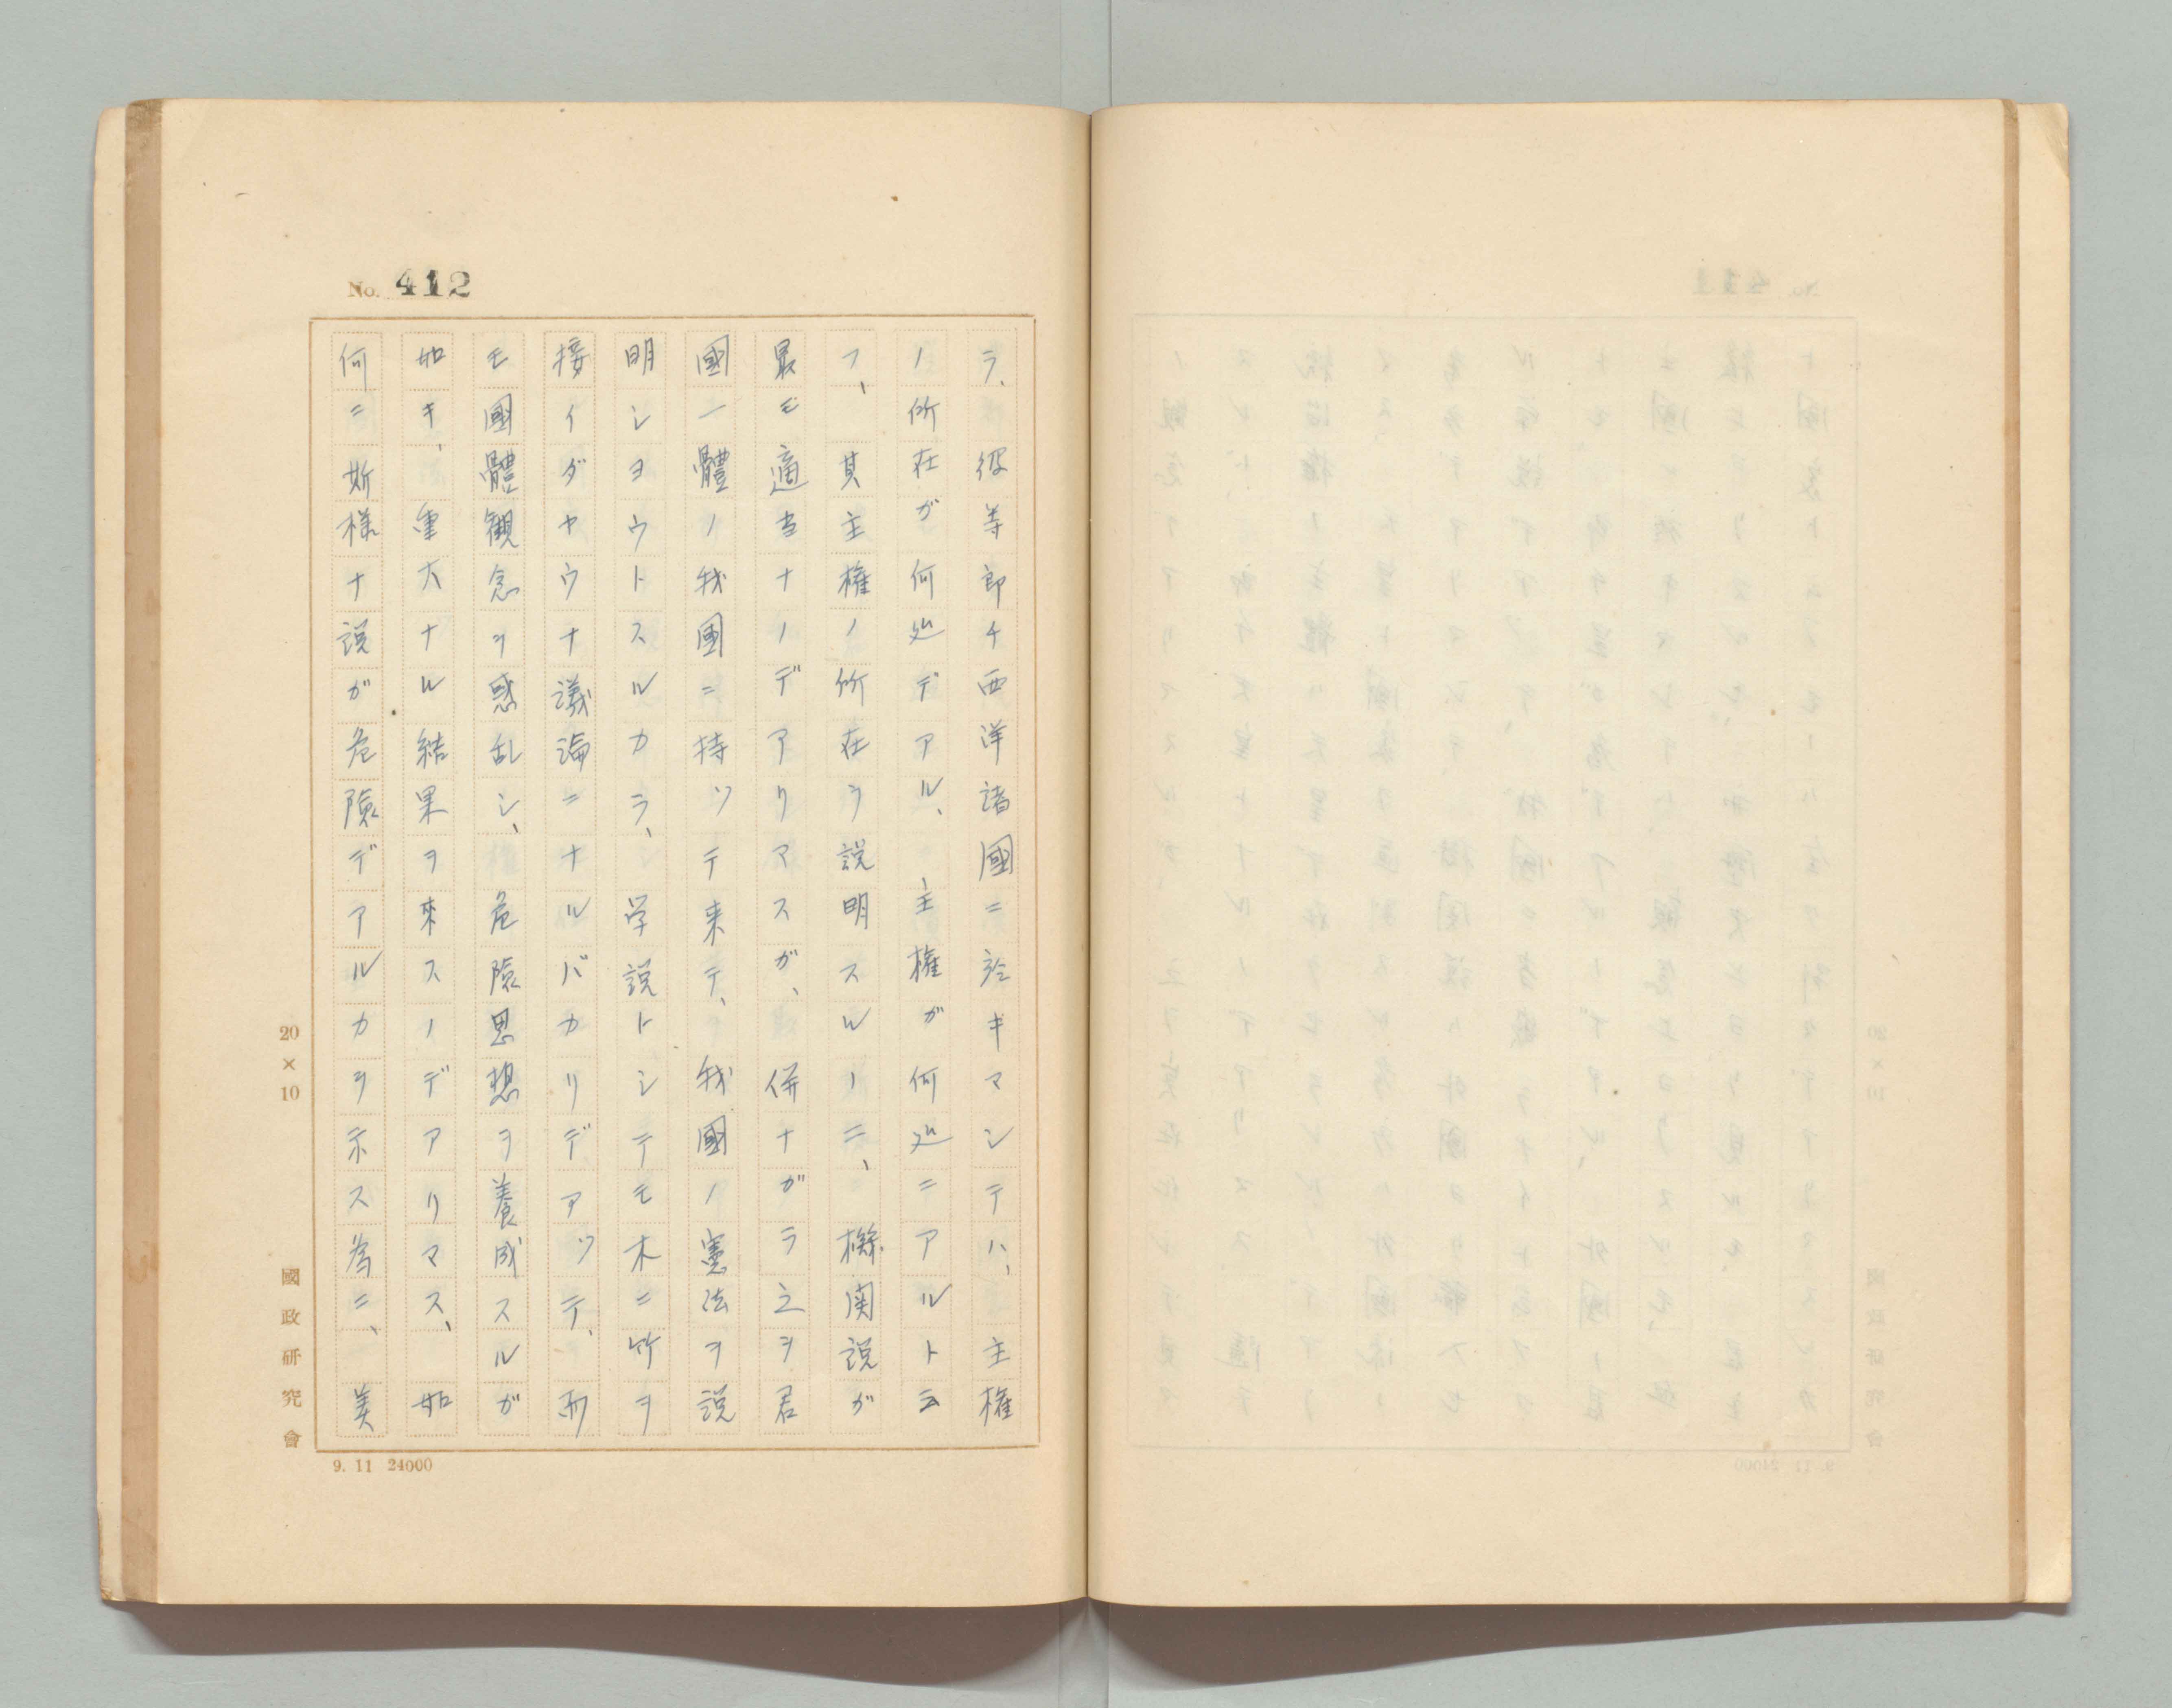 No. 412
ラ、彼等即チ西洋諸國ニ於キマシテハ、主権
ノ所在ガ何処デアル、主権ガ何処ニアルト云
フ、其主権ノ所在ヲ説明スルノニ、機関説ガ
最モ適当ナノデアリマスガ、併ナガラ之ヲ君
國一體ノ我國ニ持ツテ来テ、我國ノ憲法ヲ説
明シヨウトスルカラ、学説トシテモ木ニ竹ヲ
接イダヤウナ議論ニナルバカリデアツテ、而
モ國體観念ヲ惑乱シ、危険思想ヲ養成スルガ
如キ、重大ナル結果ヲ來スノデアリマス、如
何ニ斯様ナ説ガ危險デアルカヲ示ス為ニ、美
20×10
國政研究會
9. 11 24000